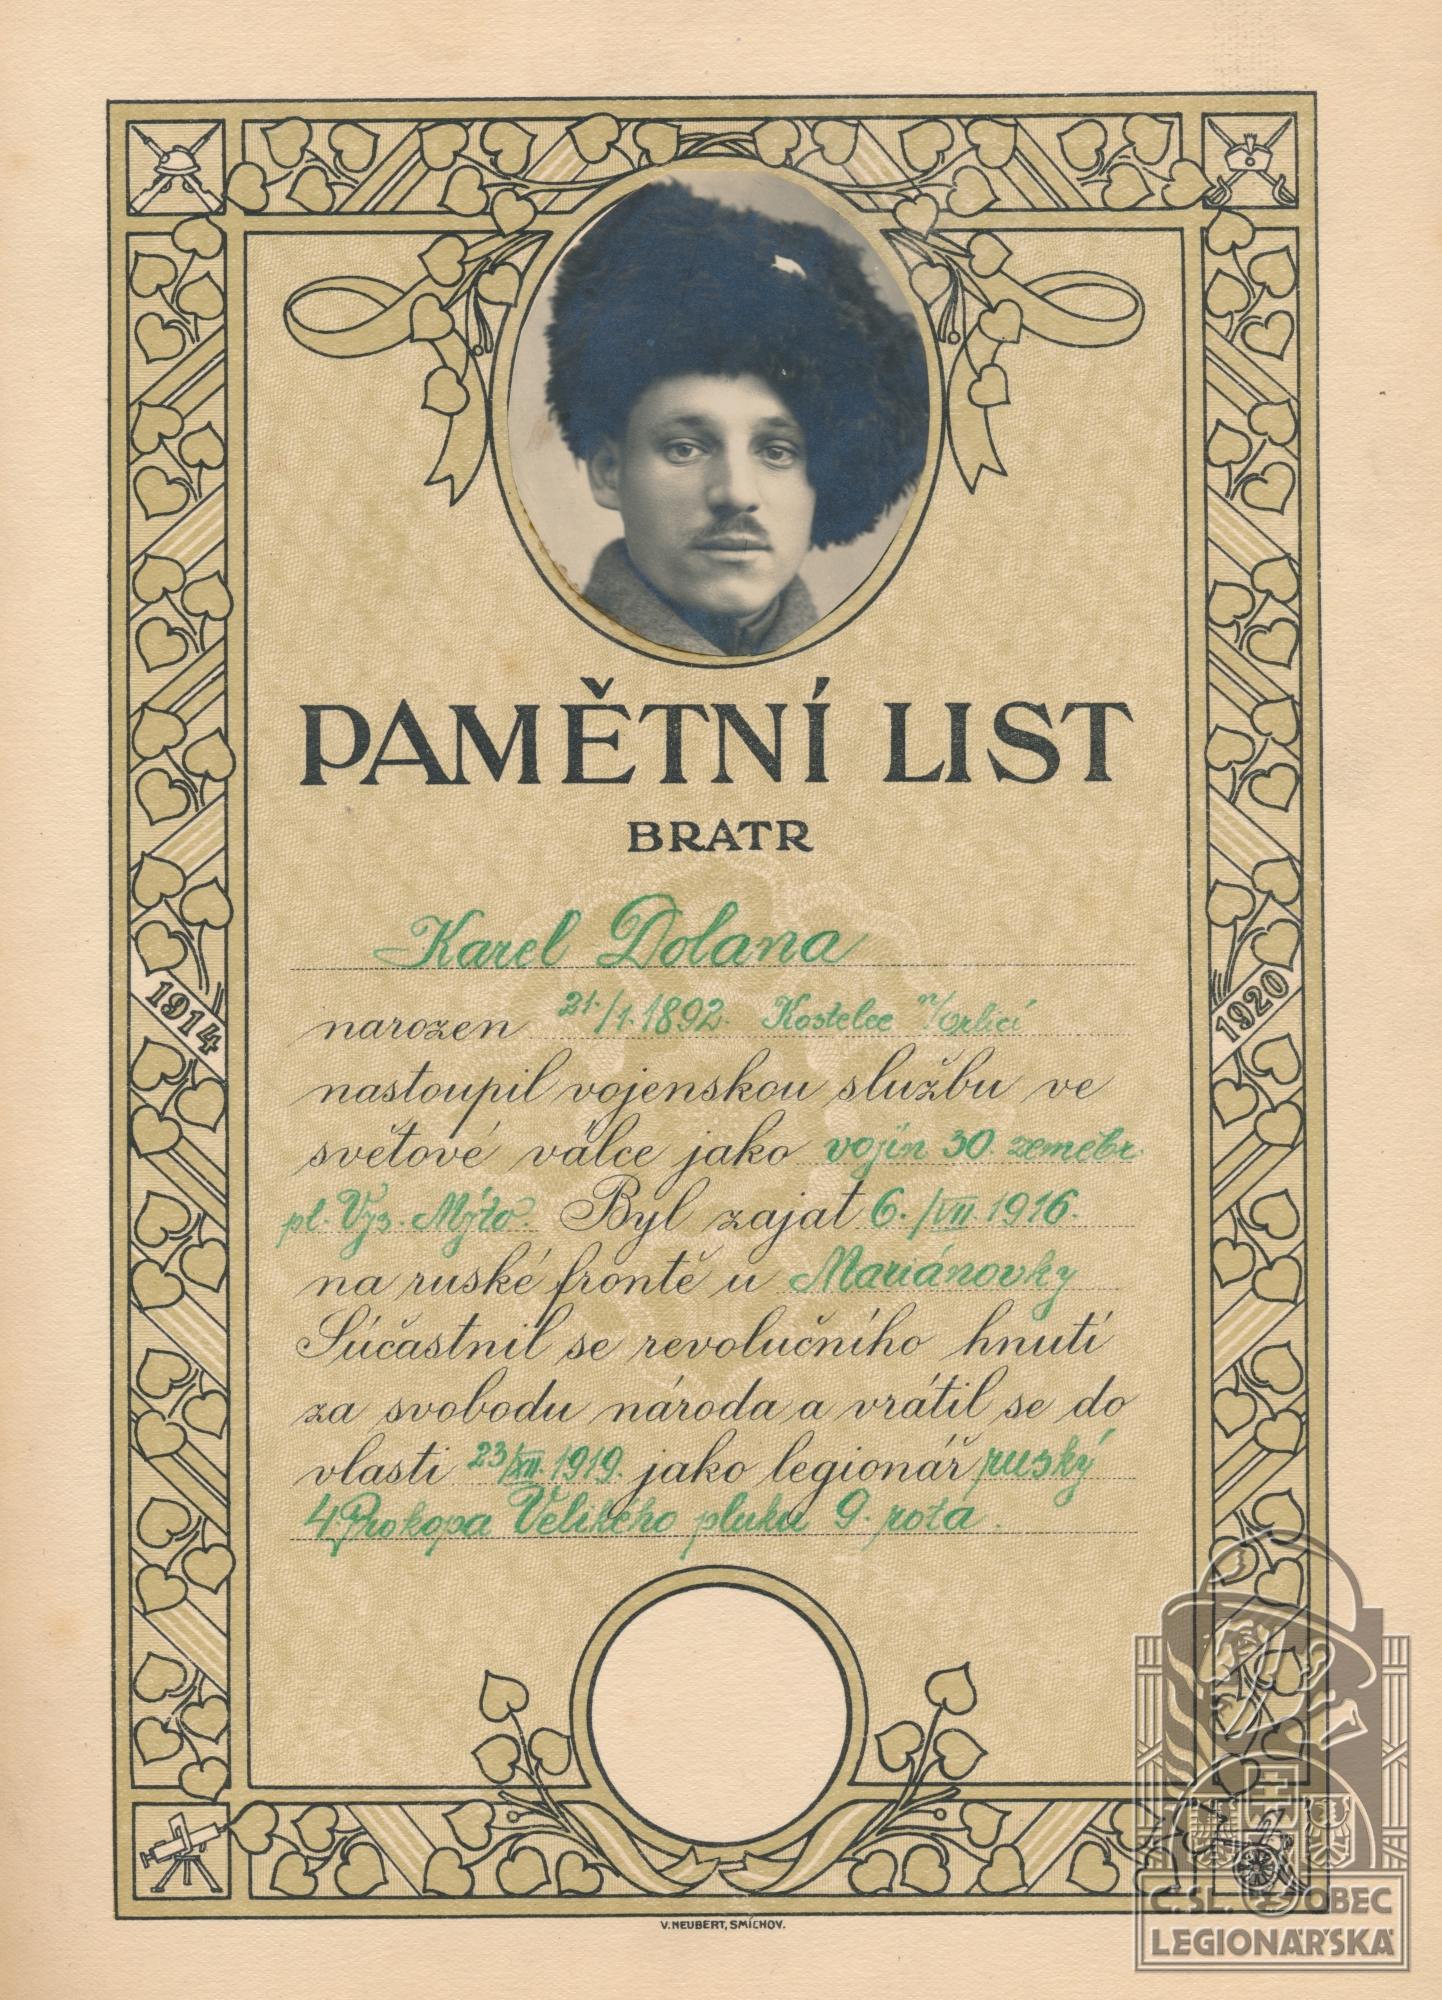 PAMĚTNÍ LIST
BRATR
Karel Dolana
narozen 21./1. 1892. Kostelec n/Orlicí
nastoupil vojenskou službu ve
světové válce jako vojín 30. zeměbr.
pl. Vys. Mýto. Byl zajat 6./VII 1916.
na ruské frontě u Mariánovky
Súčastnil se revolučního hnutí
za svobodu národa a vrátil se do
vlasti 23/XII. 1919. jako legionář ruský
4. Prokopa Velikého pluku 9. rota.
1914
1920
V. NEUBERT, SMÍCHOV.
Č.SL. OBEC
LEGIONÁŘSKÁ